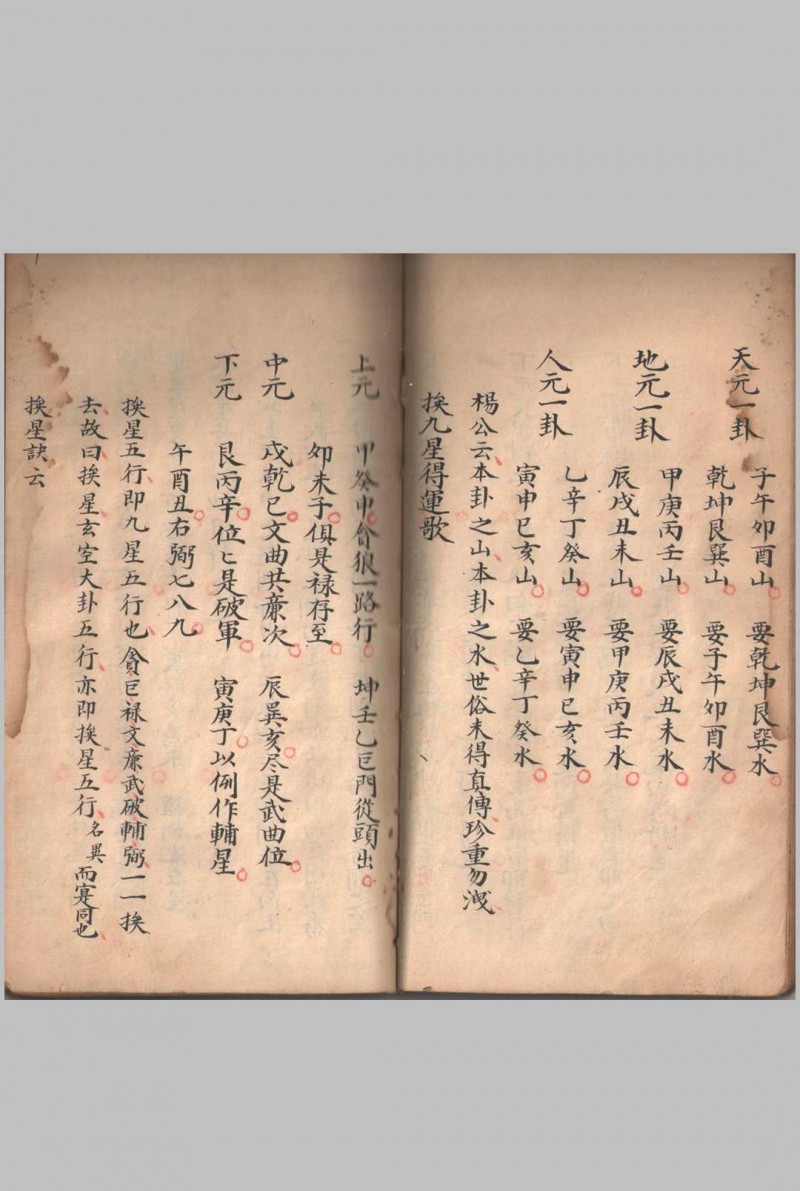 天元一卦
子午卯酉山 要乾坤艮巽水
乾坤艮巽山 要子午卯酉水
地元一卦
甲庚丙壬山 要辰戌丑未水
辰戌丑未山 要甲庚丙壬水
人元一卦
乙辛丁癸山 要寅申巳亥水
寅申巳亥山 要乙辛丁癸水
楊公云本卦之山本卦之水世俗未得真傳珍重勿洩
挨九星得運歌
上元 甲癸申貪狼一路行 坤壬乙巨門從頭出
卯未子俱是祿存至
中元 戌乾巳文曲共亷次 辰巽亥尽是武曲位
下元 艮丙辛位匕是破軍 寅庚丁以例作輔星
午酉丑右弼七八九
挨星五行即九星五行也貪巨祿文亷武破輔弼一一挨
去故曰挨星玄空大卦五行亦即挨星五行名異而寔同也
挨星訣云